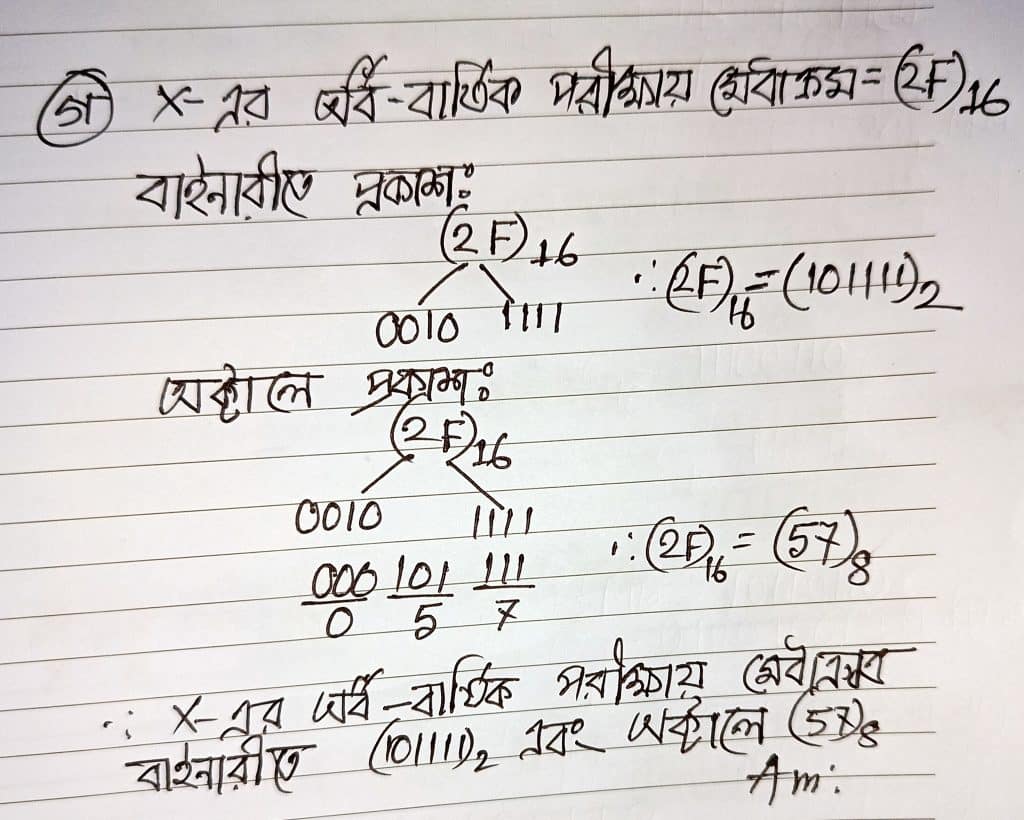 গ) X- এর অর্ধ-বার্ষিক পরীক্ষায় মেধাক্রম = (2F)16
বাইনারীতে প্রকাশঃ
(2F)16
0010 1111 ∴ (2F)16 = (101111)2
অক্টালে প্রকাশঃ
(2F)16
0010 1111
000 101 111 ∴ (2F)16 = (57)8
0 5 7
∴ X- এর অর্ধ-বার্ষিক পরীক্ষায়
বাইনারীতে (101111)2 এবং অক্টালে (57)8
Ans: